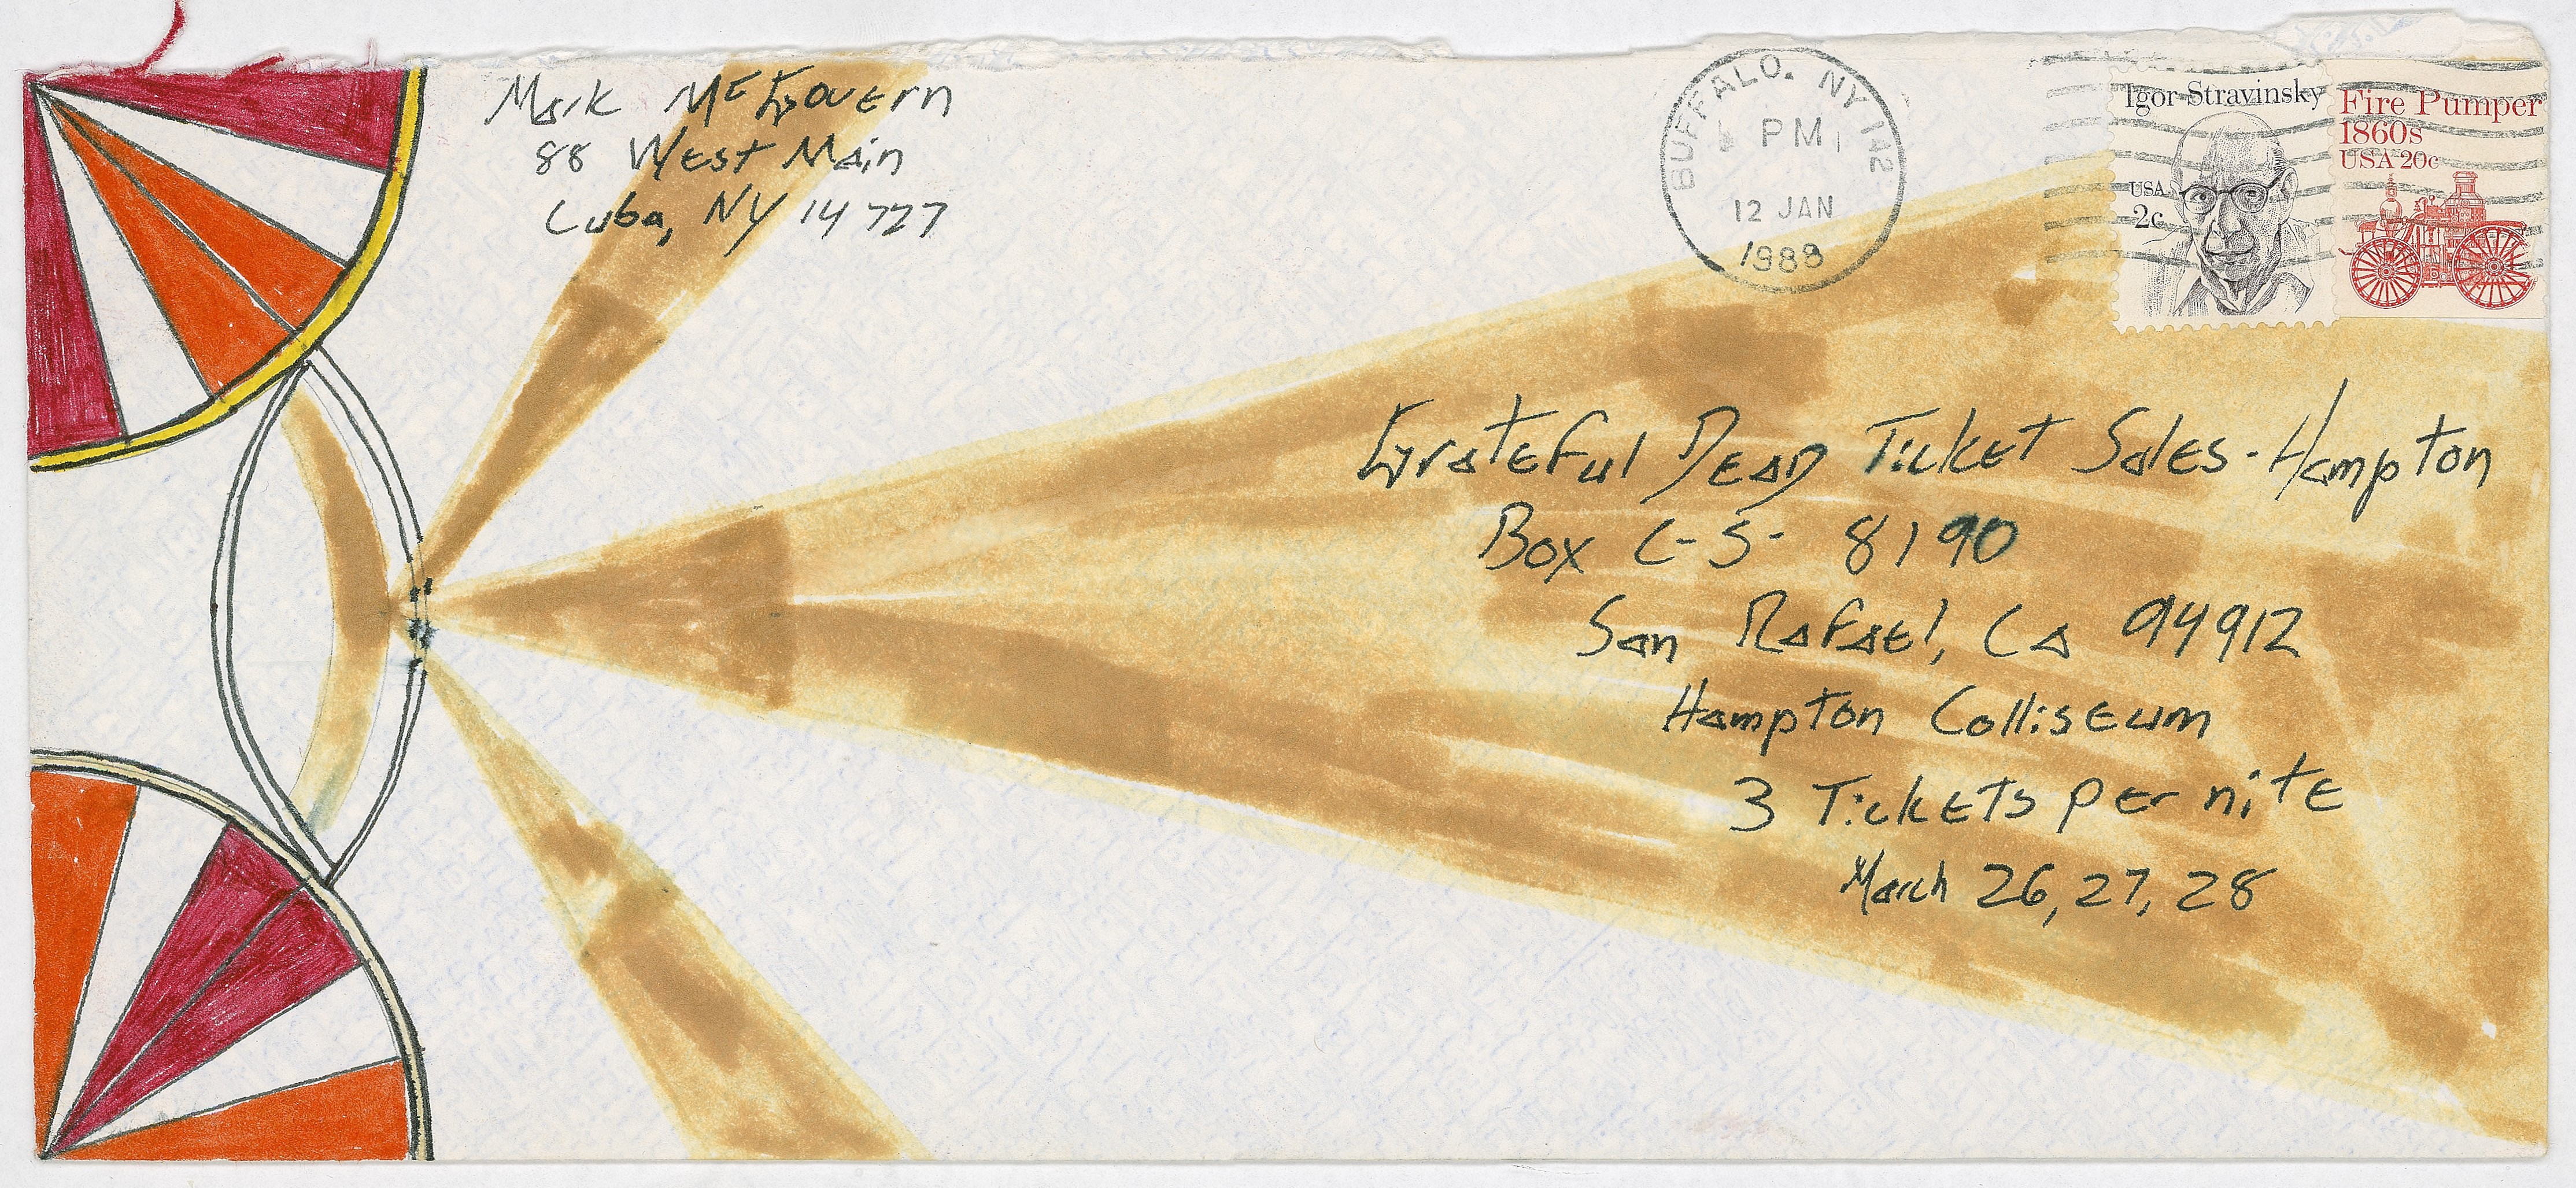 Mark McGovern
88 West Main
Cuba, NY 14727
BUFFALO, NY 142
PM
12 JAN
1988
Igor Stravinsky
USA
2c
Fire Pumper
1860s
USA 20c
Grateful Dead Ticket Sales - Hampton
Box C-S- 8190
San Rafael, Ca 94912
Hampton Colliseum
3 Tickets per nite
March 26, 27, 28